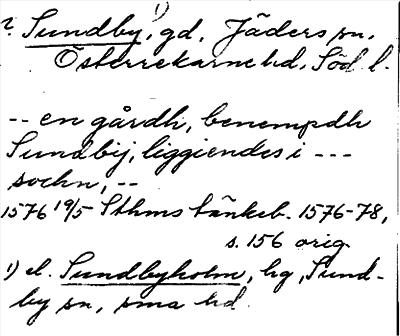 ? Sundby, 1) gd, Jäders sn,
Österrekarne hd, Söd. l.
-- en gårdh, benempdh
Sundbij, liggiendes i ---
sochn, --
1576 19/5 Sthms tänkeb. 1576-78,
s. 156 orig
1) el. Sundbyholm, hg, Sund-
by sn, sma hd